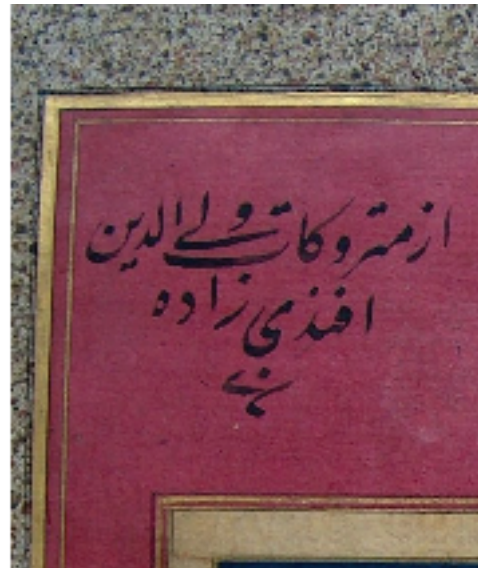 از متروکات ولی الدین
افندی زاده